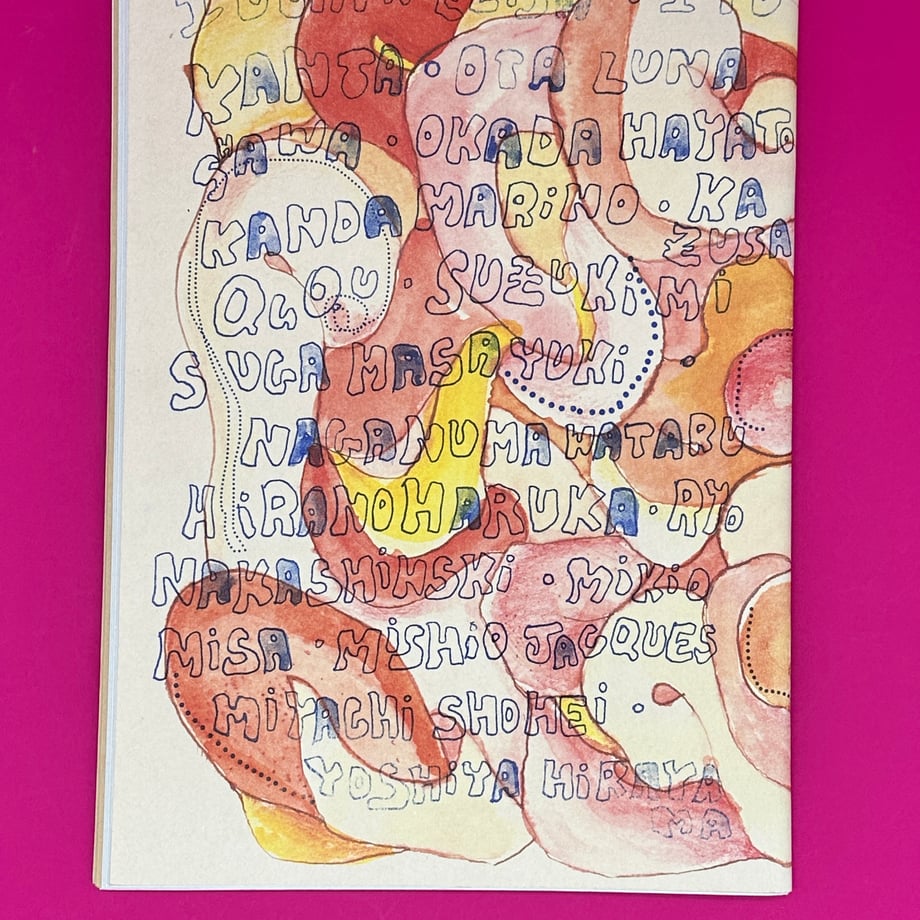 KANTA · OTA LUNA
SAWA · OKADA HAYATO
KANDA MARiNO · KA
ZUSA
QUQU · SUZUKi Mi
SUGA MASAYUKi ·
NAGANUMA WATARU
HiRANO HARUKA · RYO
NAKASHiMSKi · MiKiO
MiSA · MiSHiO JACQUES
MiYACHi SHOHEi ·
YOSHiYA HiRAYA
MA